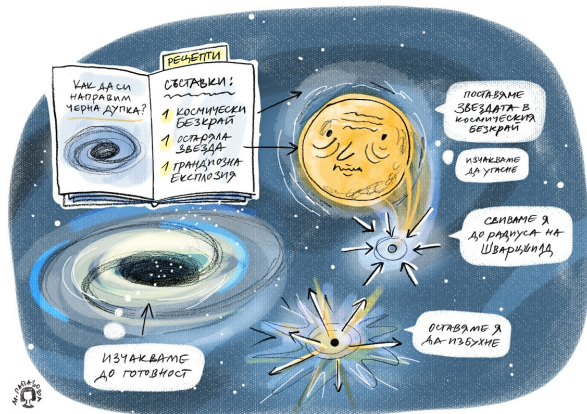 РЕЦЕПТИ
КАК ДА СИ
НАПРАВИМ
ЧЕРНА ДУПКА?
СЪСТАВКИ:
1 КОСМИЧЕСКИ
БЕЗКРАЙ
1 ОСТАРЯЛА
ЗВЕЗДА
1 ГРАНДИОЗНА
ЕКСПЛОЗИЯ
ПОСТАВЯМЕ
ЗВЕЗДАТА В
КОСМИЧЕСКИЯ
БЕЗКРАЙ
ИЗЧАКВАМЕ
ДА УГАСНЕ
СВИВАМЕ Я
ДО РАДИУСА НА
ШВАРЦШИЛД
ОСТАВЯМЕ Я
ДА ИЗБУХНЕ
ИЗЧАКВАМЕ
ДО ГОТОВНОСТ